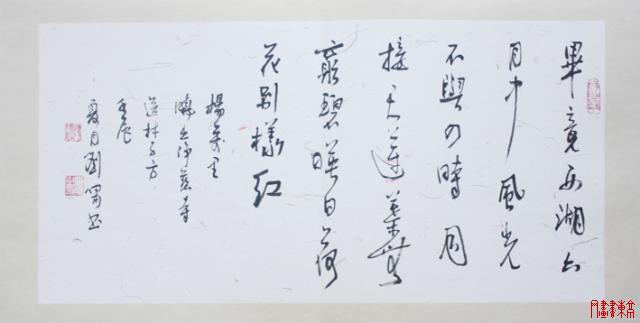 畢竟西湖六
月中風光
不與四時同
接天蓮葉無
窮碧暎日荷
花别樣紅
楊萬里
曉出淨慈寺
送林子方
壬辰
夏月劉書